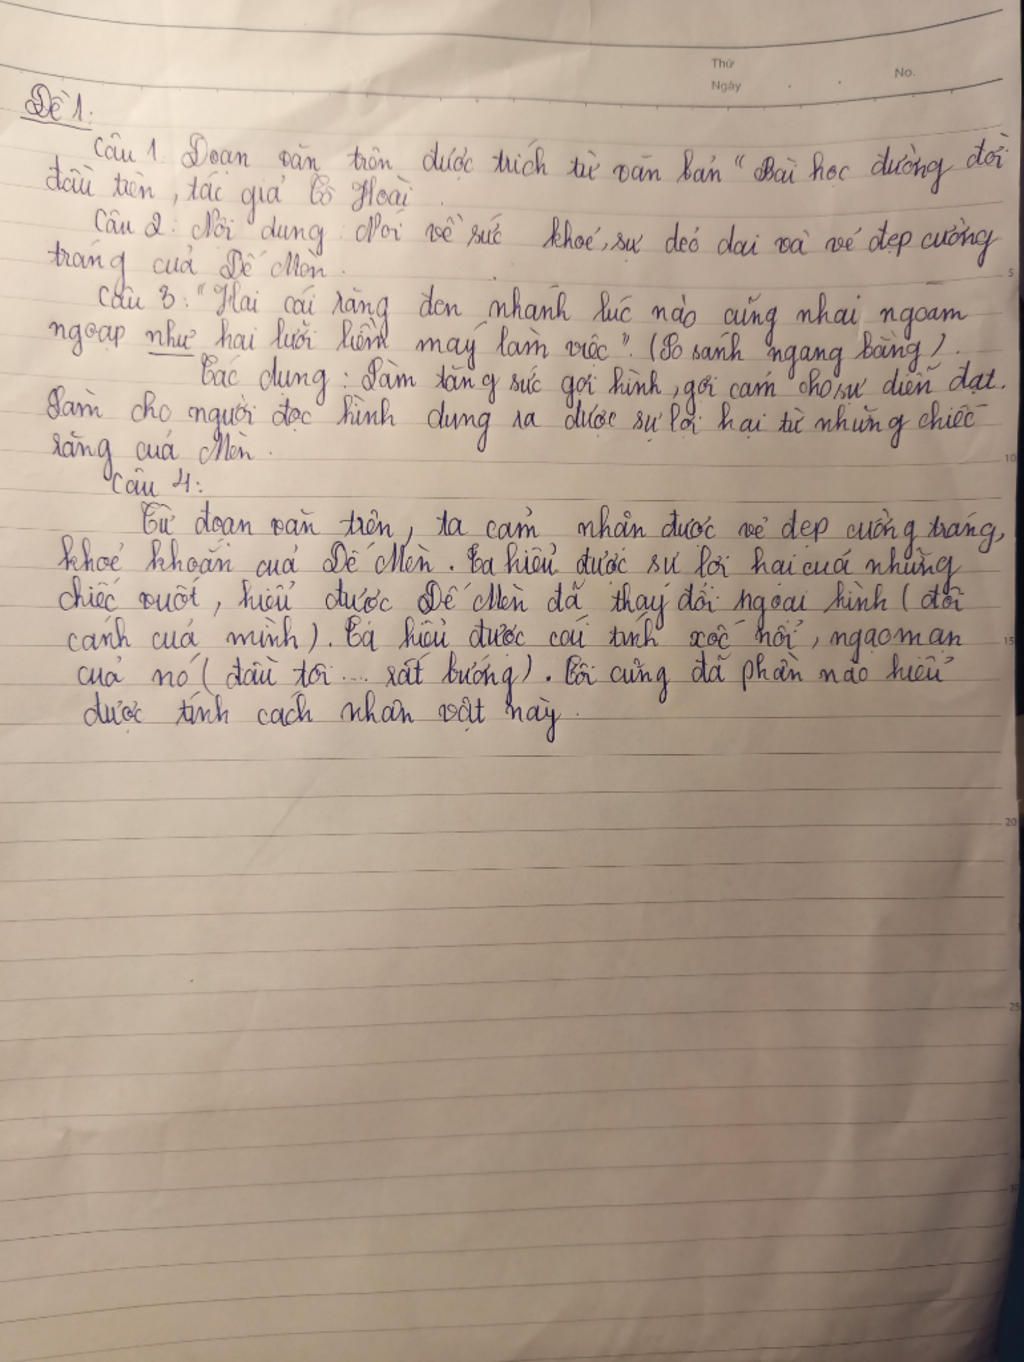 Thứ
Ngày
No.
Đề 1:
Câu 1. Đoạn văn trên được trích từ văn bản "Bài học đường đời
đầu tiên, tác giả Tô Hoài.
Câu 2: Nội dung: Nói về sức khoẻ, sự dẻo dai và vẻ đẹp cường
tráng của Dế Mèn.
5
Câu 3: "Hai cái răng đen nhánh lúc nào cũng nhai ngoàm
ngoạp như hai lưỡi liềm máy làm việc". (So sánh ngang bằng).
Tác dụng: Làm tăng sức gợi hình, gợi cảm cho sự diễn đạt.
Làm cho người đọc hình dung ra được sự lợi hại từ những chiếc
răng của Mèn.
10
Câu 4:
Từ đoạn văn trên, ta cảm nhận được vẻ đẹp cường tráng,
khoẻ khoắn của Dế Mèn. Ta hiểu được sự lợi hại của những
chiếc vuốt, hiểu được Dế Mèn đã thay đổi ngoại hình (đôi
cánh của mình). Ta hiểu được cái tính xốc nổi, ngạo mạn
15
của nó (đầu tôi ... rất bướng). Tôi cũng đã phần nào hiểu
được tính cách nhân vật này.
20
25